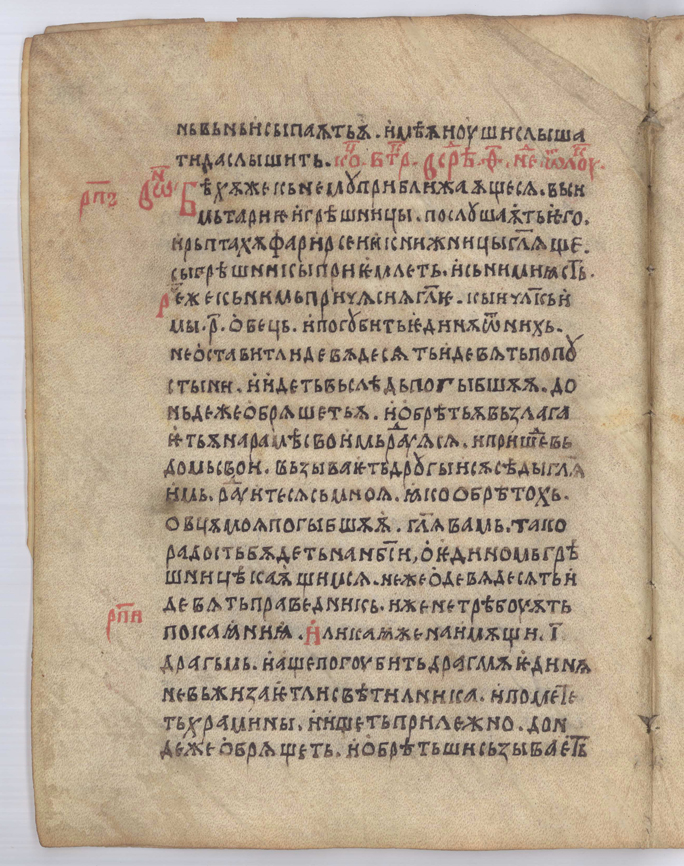 нь вънь исыпаѫтъѫ. имѣѧи оуши слыша
ти да слышить. ко҃ц. вт҃р. в срѣ҃д. ѳ҃. не҃д. ѿ лоу҃к.
рп҃з в ѡ҃н Бѣхѫ же къ немꙋ приближаѧщесѧ. вьси
мытарие и грѣшници. послꙋшаѫтъ его.
и ръптахѫ фарисеи и книжници гл҃ѧще.
сы грѣшникы приемлеть. и съ ними ꙗсть.
рече къ нимь притчѫ сиѫ гл҃ѧ. кы ичл҃къ ѿ
мы. р҃. овець. и погꙋбить единѫ ѿ нихъ.
не оставит ли девѧдесѧть и девѧть по пꙋ
стыни. и идеть въслѣдь погыбшѫѫ. до
ньдеже обрѧщетьѫ. и обрѣтьѫ възлага
етьѫ на рамѣ своимь ра҃дуѧсѧ. и пришедъ
домь свои. възываеть дрꙋгы и сѫсѣды гл҃ѧ
имь. ра҃дуитесѧ съ мноѫ. ꙗко обрѣтохъ.
овцѫ моѫ погыбшѫѫ. гл҃ѧ вамь. тако
радость бѫдеть на нб҃си, о единомь грѣ
шницѣ каѫщимсѧ. неже о девѧдесѧть и
девѧть праведникъ. иже не трѣбоуѫть
рп҃и покаꙗниꙗ. И ли каꙗ жена имѫщи. і҃
драгъмь. и аще погоубить драгмѫ единѫ
не въжизает ли свѣтилника. и помете
ть храмины. и ищеть прилежно. дон
деже обрѧщеть. и обрѣтъши съзываеть